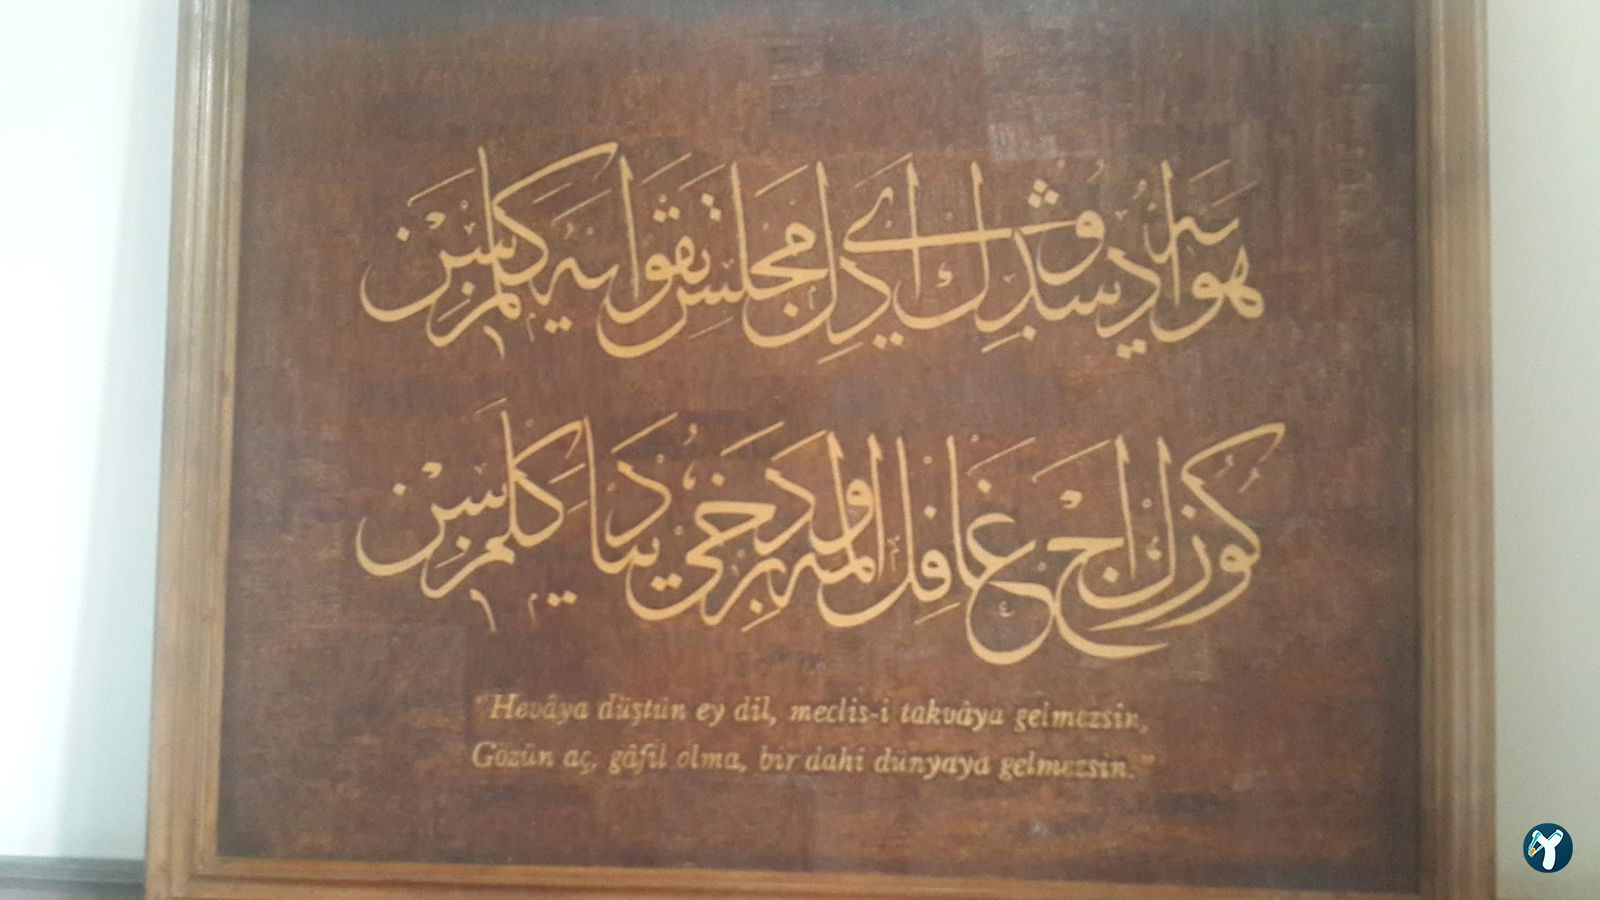 هوایه دوشدك ای دل مجلس تقوایه كلمزسین
كوزك آج غافل اولمه بر دخی دنیایه كلمزسین
"Hevâya düştün ey dil, meclis-i takvâya gelmezsin,
Gözün aç, gâfil olma, bir dahi dünyaya gelmezsin."